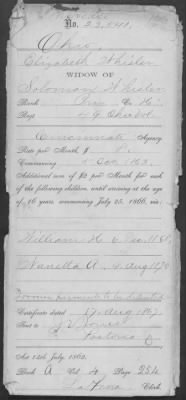 Increase
No. 23,541.
Ohio,
Elizabeth Whisler
WIDOW OF
Solomon Whisler
Rank Priv. Co. "K"
Reg't 49 Ohio Vol
Cincinnati Agency
Rate per Month, $ 8.
Commencing 5 Dec 1863.
Additional sum of $2 per Month for each
of the following children, until arriving at the age
of 16 years commencing July 25, 1866, viz:
William H.
4 Aug
Former payments to be deducted
Certificate dated 17 Aug 1867
Sent to
Fostoria O
Act 14th July, 1862.
Book A Vol. 4 Page 254
Clerk.